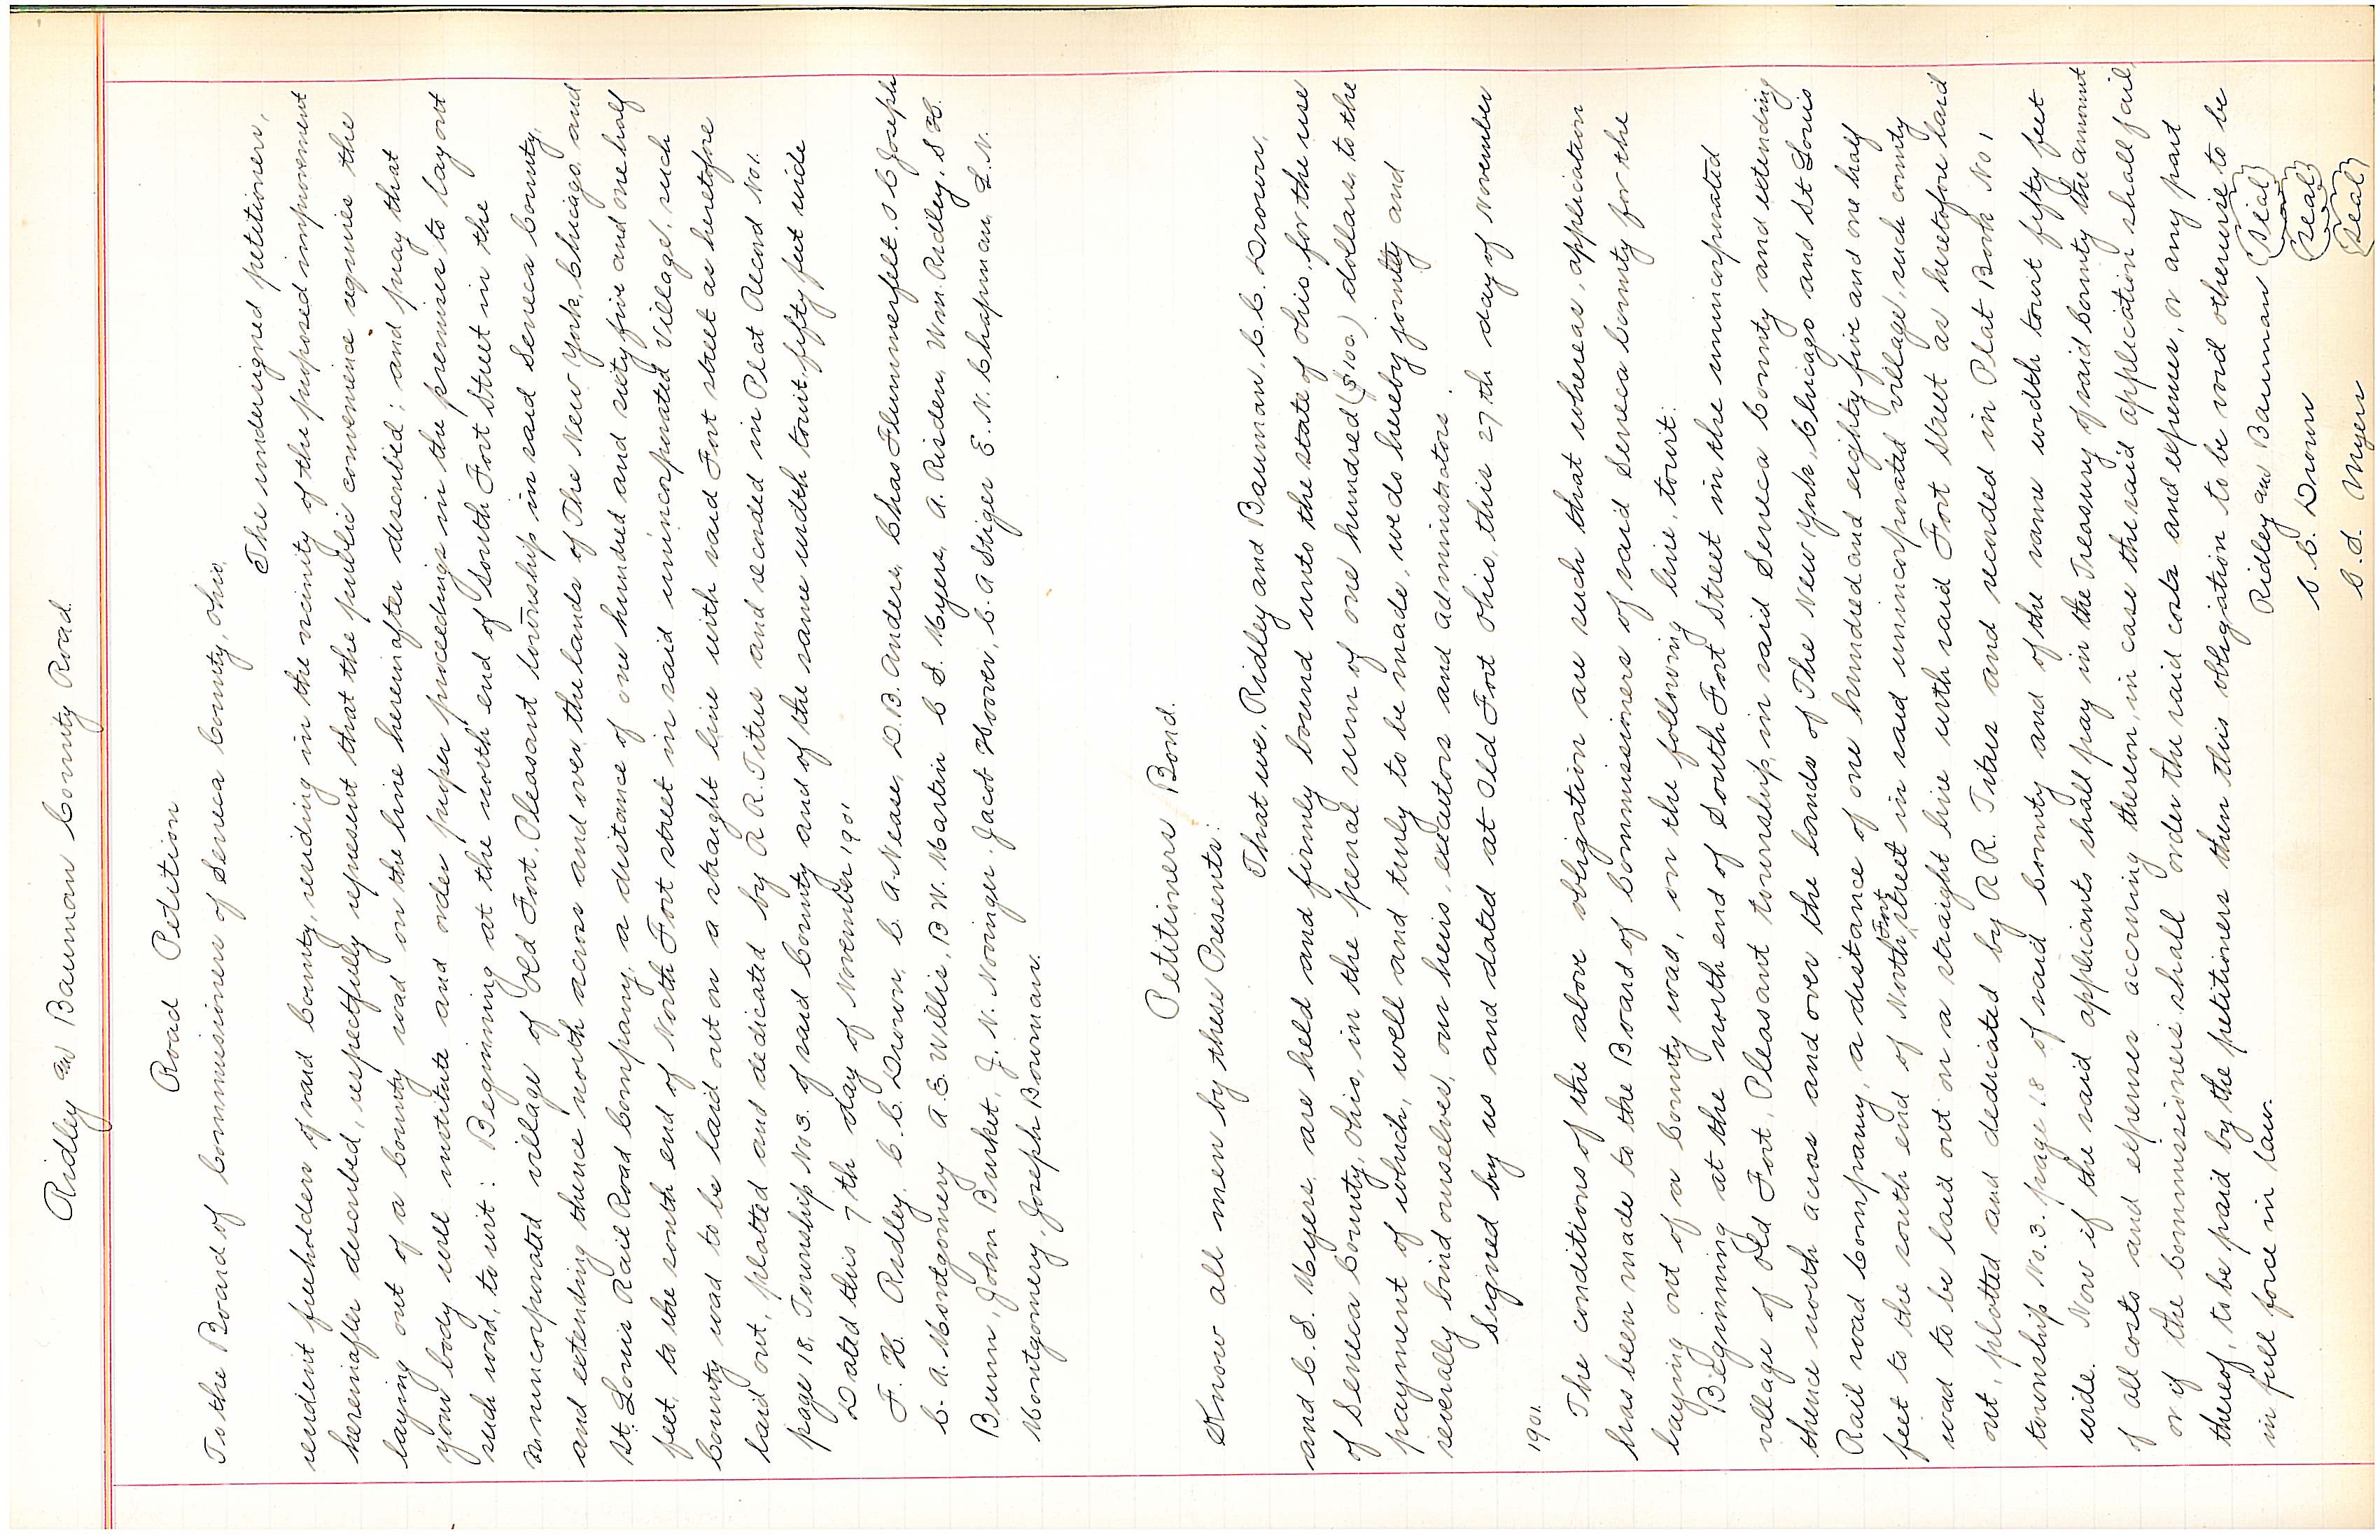 Ridley and Bauman County Road.
Road Petition
To the Board of Commissioners of Seneca County, Ohio,
The undersigned petitioners,
resident freeholders of said County, residing in the vicinity of the proposed improvement
hereinafter described, respectfully represent that the public convenience requires the
laying out of a County road on the line hereinafter described; and pray that
your body will institute and order proper proceedings in the premises to lay out
such road, to wit: Beginning at the north end of South Fort Street in the
unincorporated village of Old Fort, Pleasant township in said Seneca County,
and extending thence north across and over, the lands of The New York, Chicago and
St. Louis Rail Road Company, a distance of one hundred and sixty five and one half
feet, to the south end of North Fort street in said unincorporated Village, such
County road to be laid out on a straight line with said Fort street as heretofore
laid out, platted and dedicated by A R. Titus and recorded in Plat Record No 1.
page 18, Township No 3. of said County and of the same width towit, fifty feet wide
Dated this 7th day of November 1901.
F. H. Ridley, C. C. Drown, C. A. Nease, D. B. Anders, Chas Flummerfelt. S C Joseph
C. A. Montgomery A. E. Willis, B W. Martin C S. Myers, A. Risden, Wm. Ridley, S H.
Bunn, John Burket, J. N. Noringer Jacob Hoover, C. A Stiger E. N. Chapman, L. N.
Montgomery, Joseph Bowman.
Petitioners Bond.
Know all men by these Presents:
That we, Ridley and Bauman, C. C. Drown,
and C. S. Myers, are held and firmly bound unto the state of Ohio, for the use
of Seneca County, Ohio, in the penal sum of one hundred ($100) dollars, to the
payment of which, well and truly to be made, we do hereby jointly and
severally bind ourselves, our heirs, executors and administrators.
Signed by us and dated at Old Fort Ohio, this 27th day of November
1901.
The conditions of the above obligation are such that whereas, application
has been made to the Board of Commissioners of said Seneca County for the
laying out of a County road, on the following line, towit:
Beginning at the north end of South Fort Street in the unincorporated
village of Old Fort, Pleasant township, in said Seneca County and extending
thence north across and over the lands of The New York, Chicago and St Louis
Rail road Company, a distance of one hundred and eighty five and one half
feet to the south end of North Fort street in said unincorporated village, such county
road to be laid out on a straight line with said Fort Street as heretofore laid
out, plotted and dedicated by A R. Titus and recorded in Plat Book No 1
township No. 3. page 18 of said County and of the same width towit fifty feet
wide. Now if the said applicants shall pay in the Treasury of said County the amount
of all costs and expenses accruing thereon, in case the said application shall fail,
or if the Commissioners shall order the said costs and expenses, or any part
thereof, to be paid by the petitioners then this obligation to be void otherwise to be
in full force in law.
Ridley and Bauman (seal)
C. C. Drown (seal)
C. S. Myers (seal)